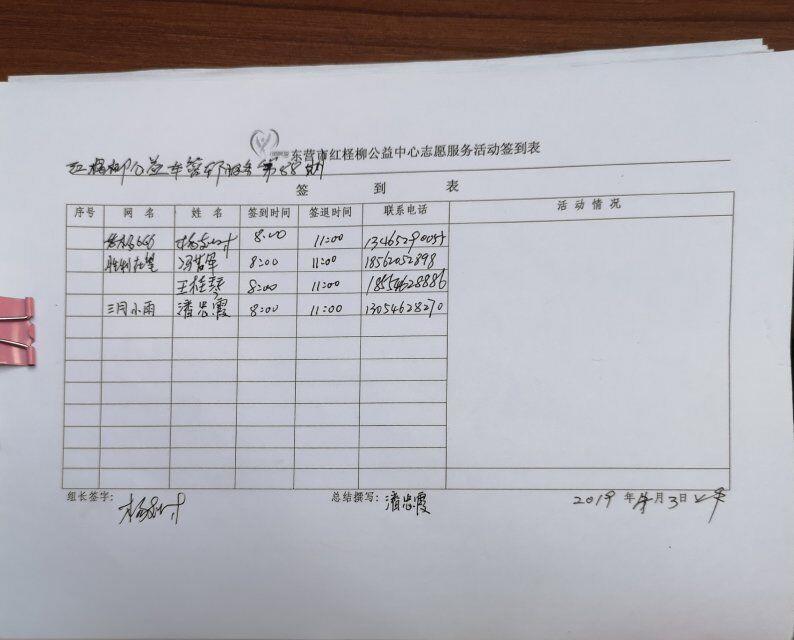 东营市红柽柳公益中心志愿服务活动签到表
红柽柳公益车管所服务第88期
签 到 表
序号 网名 姓名 签到时间 签退时间 联系电话 活动情况
8:00 11:00 13465290055
胜利在望 冯哲军 8:00 11:00 18562052898
王桂琴 8:00 11:00 18554628886
三月小雨 潘忠霞 8:00 11:00 13054628270
组长签字: 总结撰写: 潘忠霞 2019 年 月 3 日